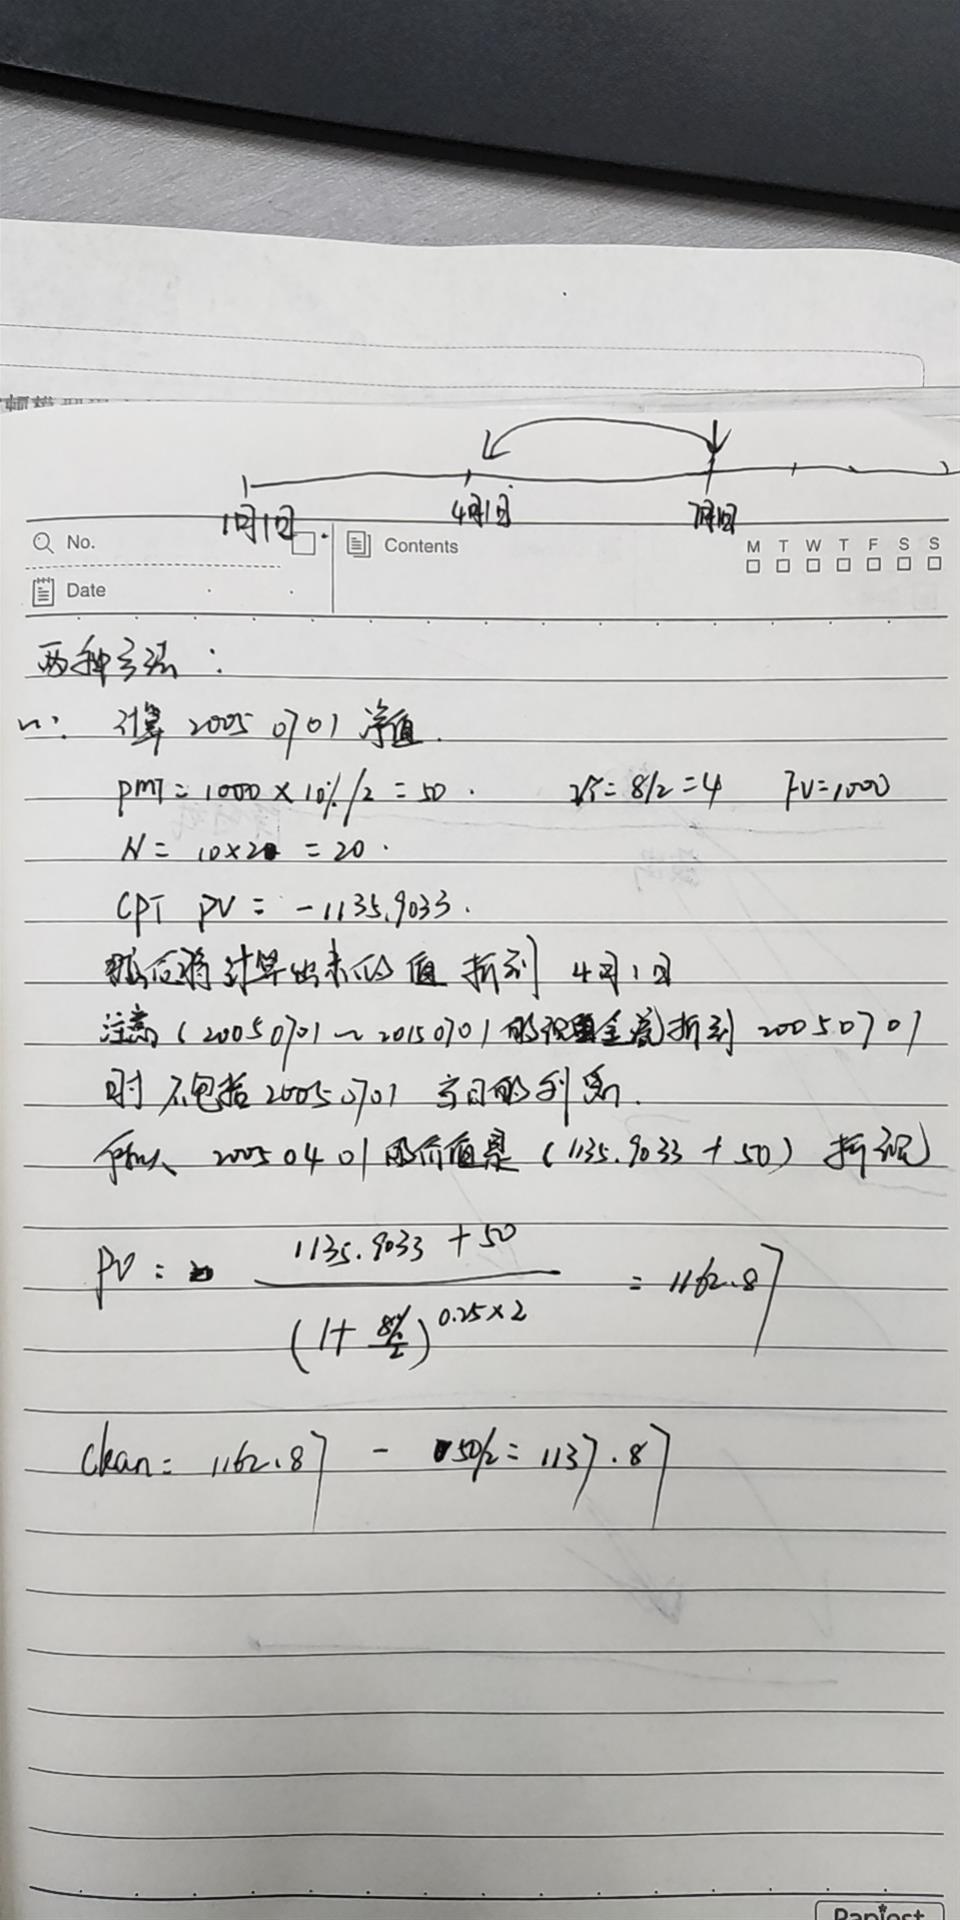 1月1日 4月1日 7月1日
No. Contents M T W T F S S
Date
两种方法:
计算 20050701 净值.
PMT = 1000 × 10% / 2 = 50 . I/Y = 8/2 = 4 FV = 1000
N = 10×2 = 20 .
CPT PV = -1135.9033 .
然后将计算出来的值 折到 4月1日
注意 ( 20050701 ~ 20150701 的现金流) 折到 20050701
时 不包括 20050701 当日的利息.
所以 20050401的价值是 (1135.9033 + 50) 折现
1135.9033 + 50
PV = = 1162.87
(1 + 8%/2)^0.25×2
clean = 1162.87 - 50/2 = 1137.87